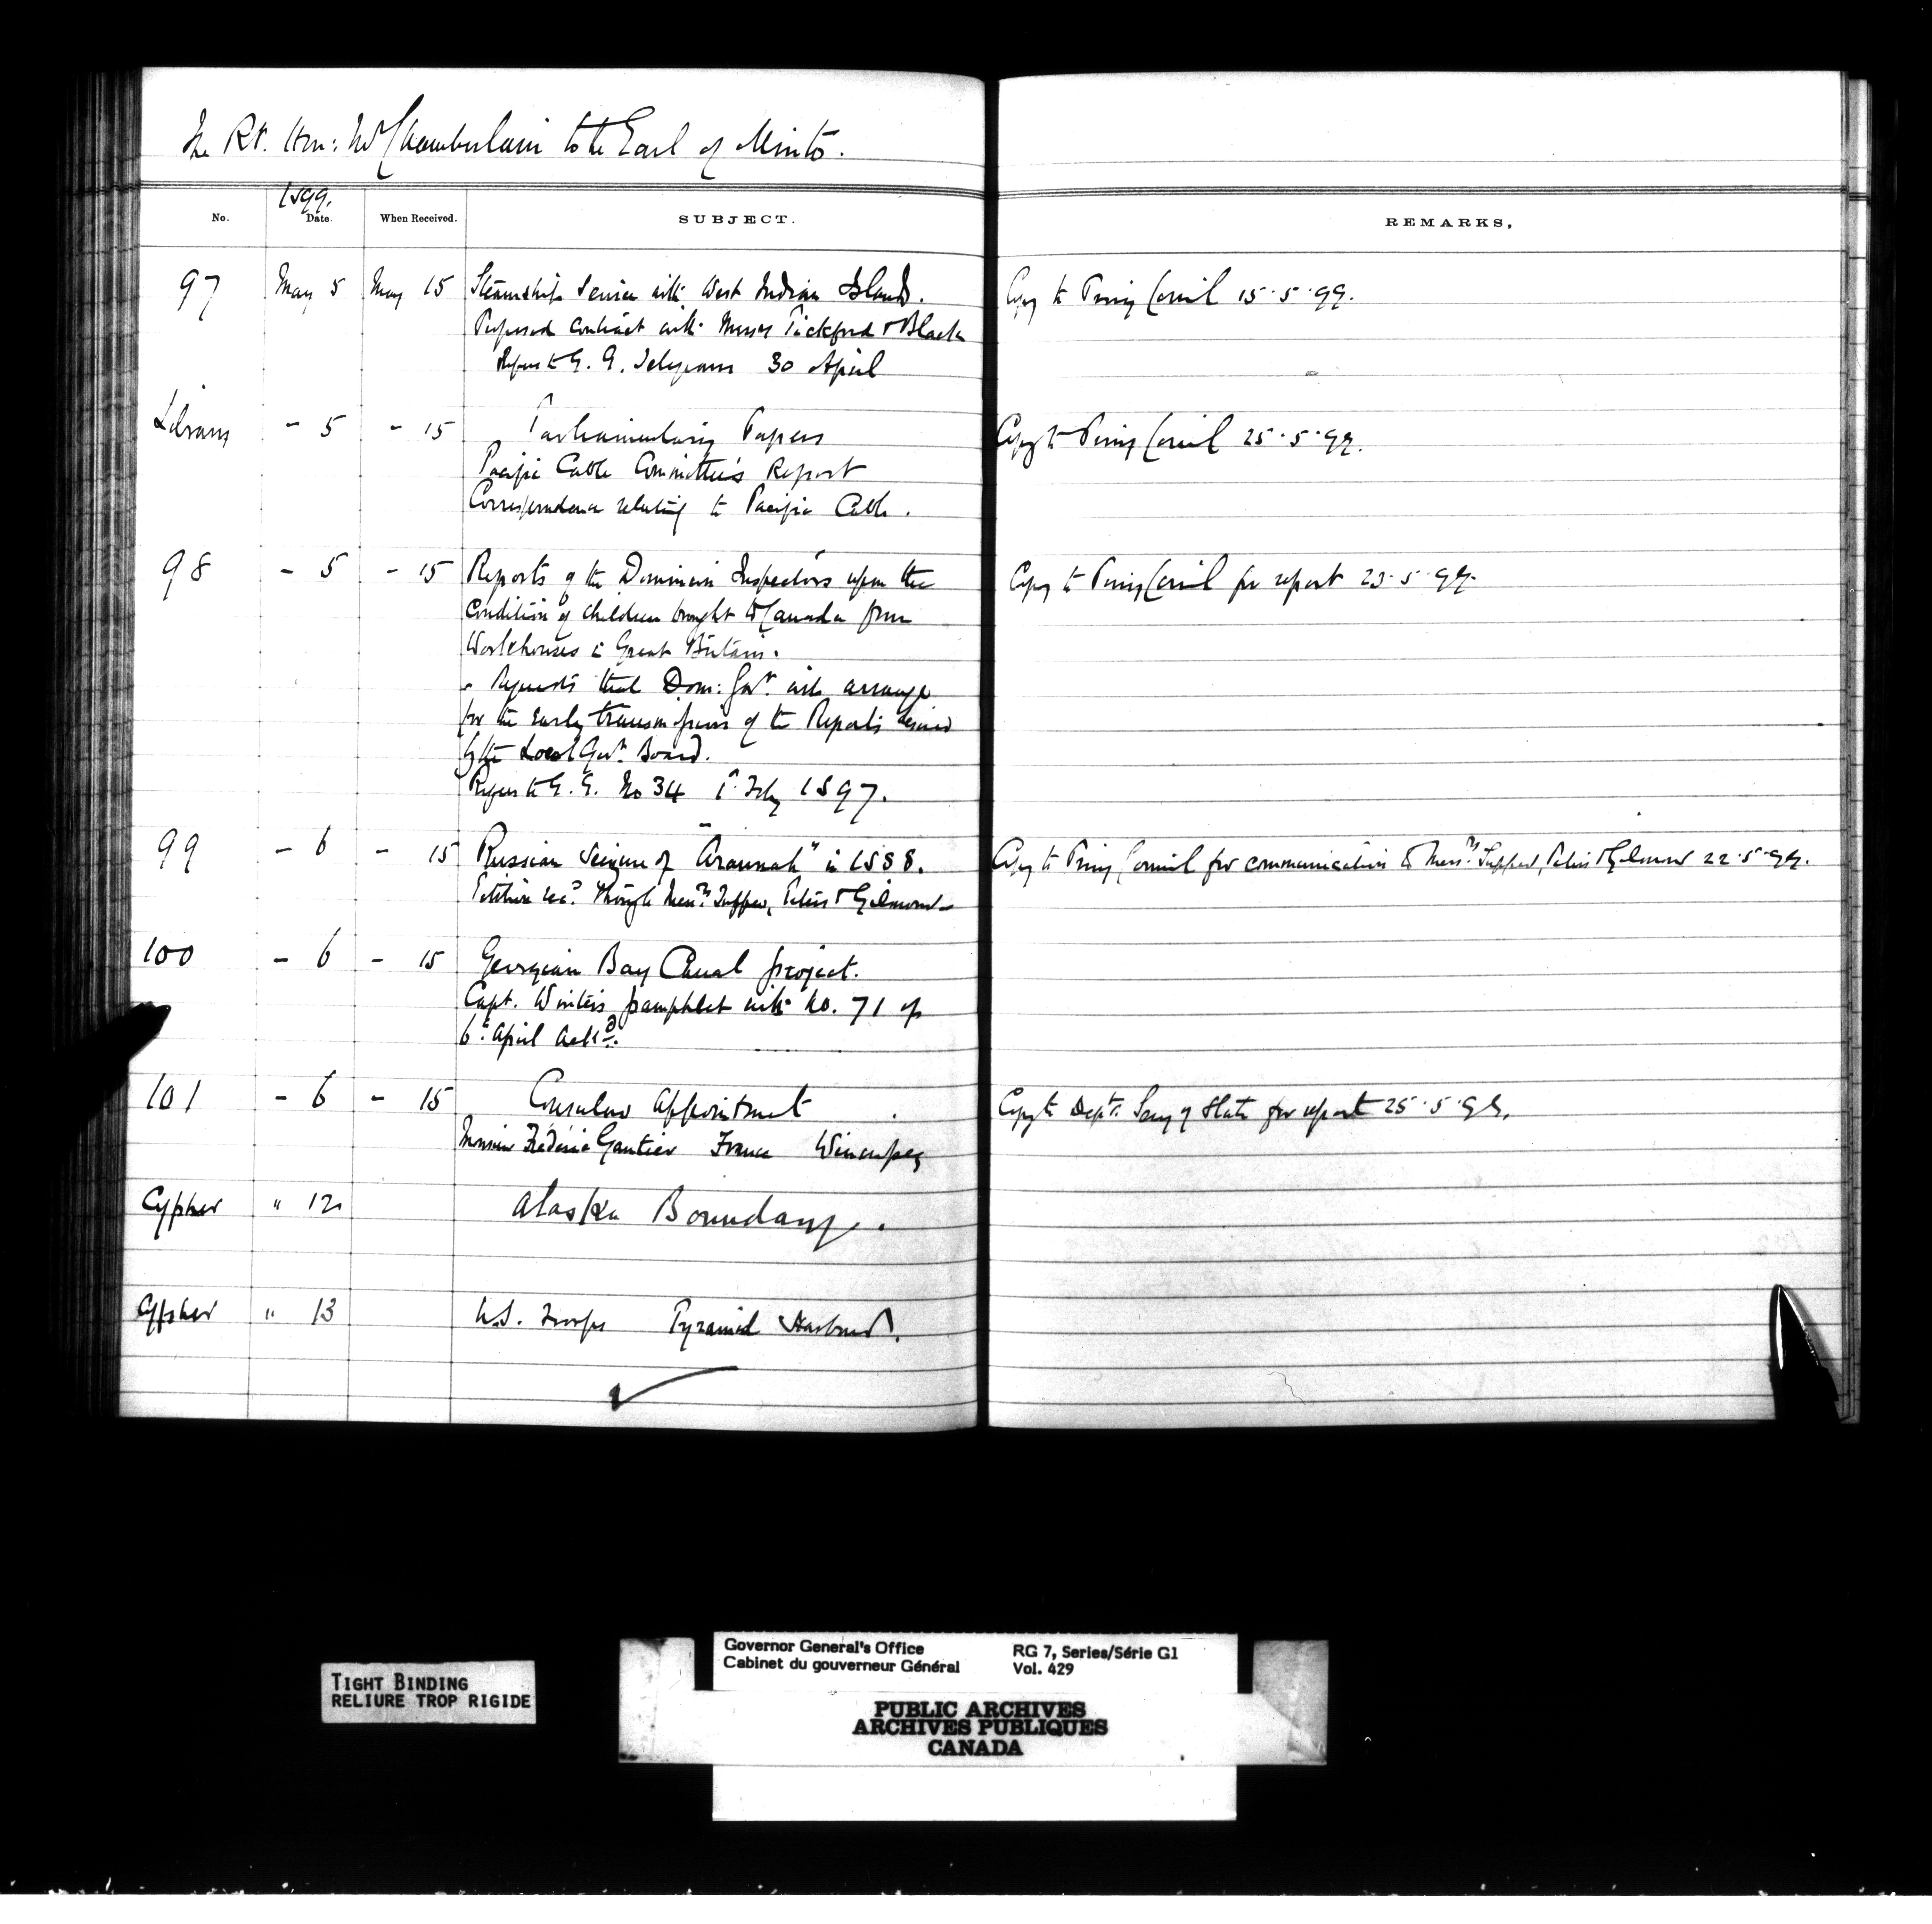 The Rt. Hon: Mr Chamberlain to the Earl of Minto.
1899.
No. Date. When Received. SUBJECT. REMARKS,
97 May 5 May 15 Steamship Service with West Indian Islands. Copy to Privy Council 15.5.99.
Proposed contract with Messrs Pickford & Black
Refers to G. G. Telegram 30 April
Library - 5 - 15 Parliamentary Papers Copy to Privy Council 25.5.99.
Pacific Cable Committee's Report
Correspondence relating to Pacific Cable.
98 - 5 - 15 Reports of the Dominion Inspectors upon the Copy to Privy Council for report 23.5.99.
condition of children brought to Canada from
Workhouses in Great Britain.
- Requests that Dom: Govt. will arrange
for the early transmission of the Reports desired
by the Local Govt. Board.
Refers to G. G. No 34 1st Feby 1897.
99 - 6 - 15 Russian seizure of "Araunah" in 1888. Copy to Privy Council for communication to Messrs. Tupper, Peters & Gilmour 22.5.99.
Petition recd. through Messrs. Tupper, Peters & Gilmour -
100 - 6 - 15 Georgian Bay Canal project.
Capt. Winter's pamphlet with No. 71 of
6th April ackd.
101 - 6 - 15 Consular appointment Copy to Dept. Secy of State for report 25.5.99.
Monsieur Frédéric Gautier France Winnipeg
Cypher " 12 Alaska Boundary.
Cypher " 13 U.S. Troops Pyramid Harbour.
TIGHT BINDING
RELIURE TROP RIGIDE
Governor General's Office RG 7, Series/Série G1
Cabinet du gouverneur Général Vol. 429
PUBLIC ARCHIVES
ARCHIVES PUBLIQUES
CANADA